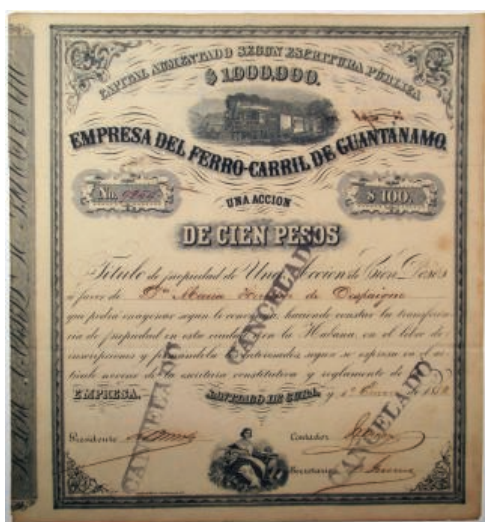 CAPITAL AUMENTADO SEGUN ESCRITURA PUBLICA
$1.000,000.
EMPRESA DEL FERRO-CARRIL DE GUANTANAMO.
No.
UNA ACCION
$ 100.
DE CIEN PESOS
Titulo de propiedad de Una Accion de Cien Pesos
á favor de Da. Maria de Despaigne
que podrá enagenar segun le convenga haciendo constar la transferen
cia de propiedad en esta ciudad en la Habana, en el libro de
inscripciones y segun se espresa en el ar
ticulo noveno de la escritura constitutiva y reglamento de
EMPRESA.
SANTIAGO DE CUBA, y 1º Enero 18
Presidente
Contador
Secretario
CANCELADO
CANCELADO
CANCELADO